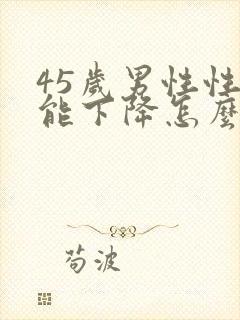 45歲男性性
能下降怎麼
苟波